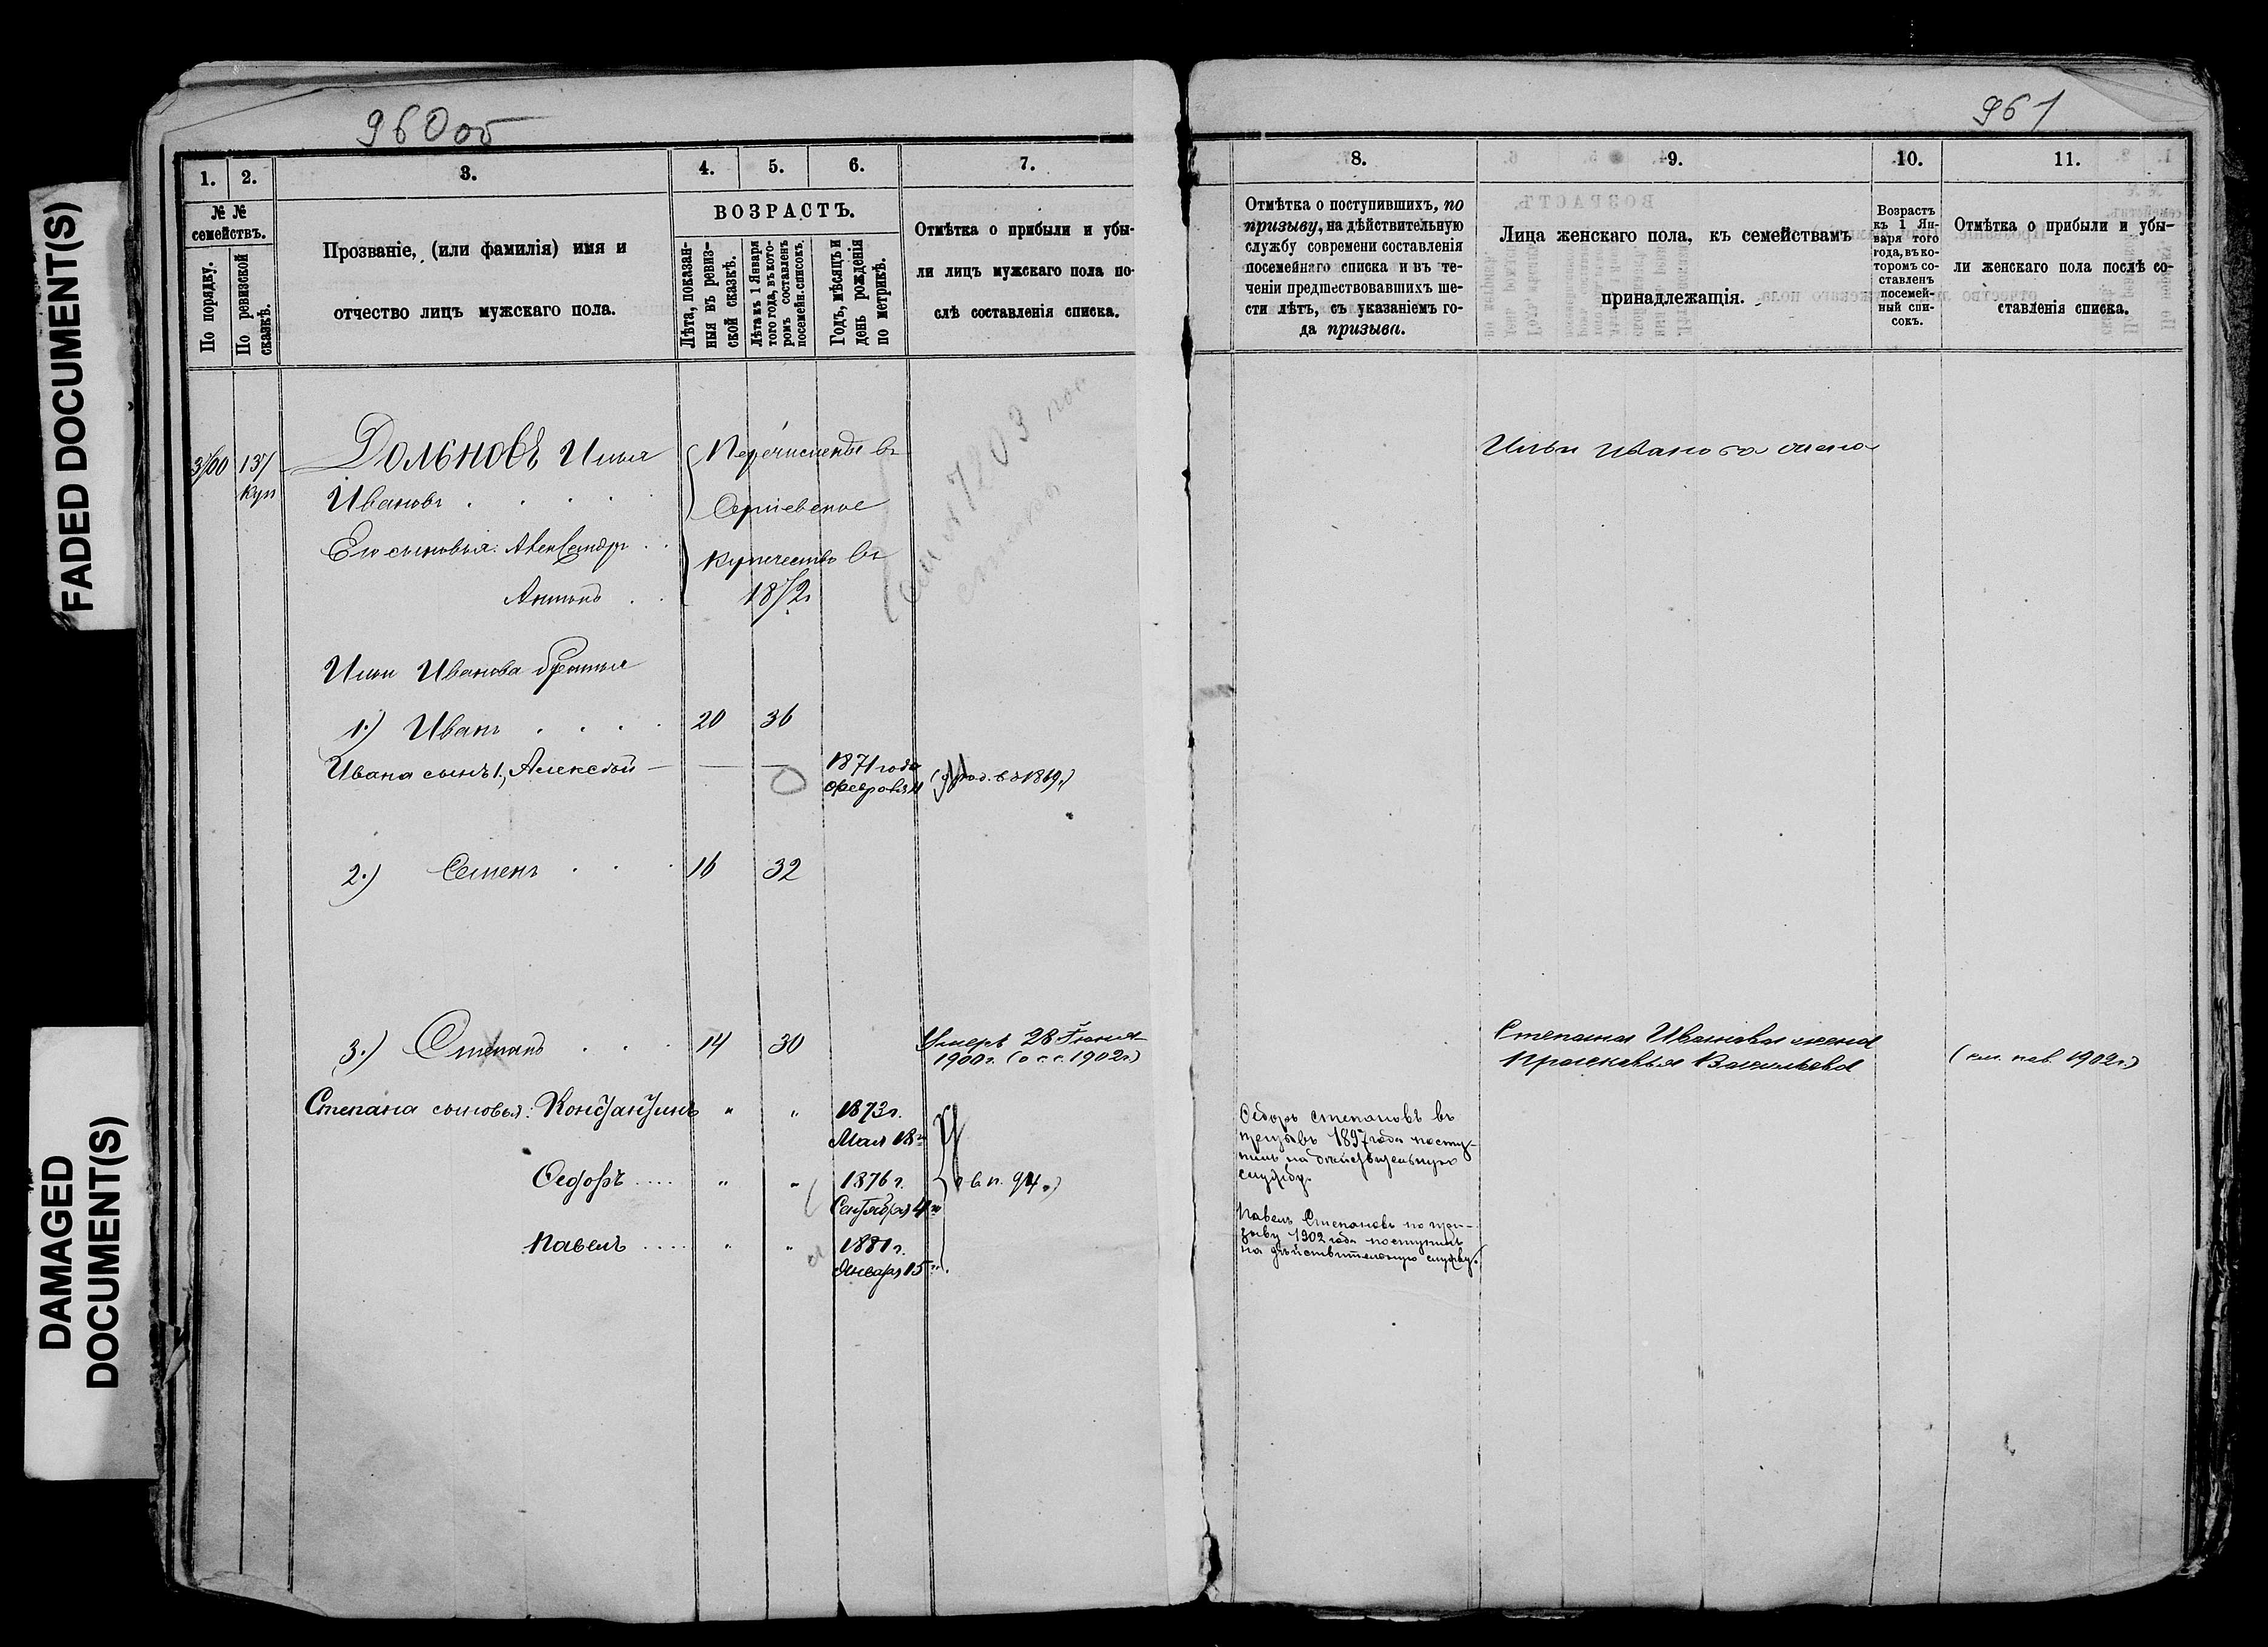 FADED DOCUMENT(S)
DAMAGED
DOCUMENT(S)
960об
1.
2.
3.
4.
5.
6.
7.
№ №
семействъ.
По порядку.
По ревизской
сказкѣ.
Прозваніе, (или фамилія) имя и
отчество лицъ мужскаго пола.
ВОЗРАСТЪ.
Лѣта, показан-
ныя въ ревиз-
ской сказкѣ.
Лѣта къ 1 Января
того года, въ кото-
ромъ составленъ
посемейн. списокъ.
Годъ, мѣсяцъ и
день рожденія
по метрикѣ.
Отмѣтка о прибыли и убы-
ли лицъ мужскаго пола по-
слѣ составленія списка.
137
куп
Дольновъ Илья
Ивановъ . . . .
Его сыновья: Александръ . .
Антонъ . .
Перечислены въ
Сергіевское
купечество въ
Ильи Иванова братья
1.) Иванъ . . . .
20
36
Ивана сынъ 1., Алексѣй —
1871 года
Февраля 4
(род. въ 1869.)
2.) Семенъ . . .
16
32
3.) Степанъ . . .
14
30
Умеръ 28 Іюня
1900 г. (о с.с. 1902 г.)
Степана сыновья: Константинъ
"
"
1873 г.
Мая 18
Федоръ ....
"
"
1876 г.
Сентября 4
в п. 94
Павелъ ....
"
"
1881 г.
Января 15
961
8.
9.
10.
11.
Отмѣтка о поступившихъ, по
призыву, на дѣйствительную
службу современи составленія
посемейнаго списка и въ те-
ченіи предшествовавшихъ ше-
сти лѣтъ, съ указаніемъ го-
да призыва.
Лица женскаго пола, къ семействамъ
принадлежащія.
Возрастъ
къ 1 Ян-
варя того
года, въ ко-
торомъ со-
ставленъ
посемей-
ный спи-
сокъ.
Отмѣтка о прибыли и убы-
ли женскаго пола послѣ со-
ставленія списка.
Ильи Иванова жена
Степана Иванова жена
Прасковья Васильева
Федоръ Степановъ въ
призывъ 1897 года посту-
пилъ на дѣйствительную
службу.
Павелъ Степановъ по при-
зыву 1902 года поступилъ
на дѣйствительную службу.